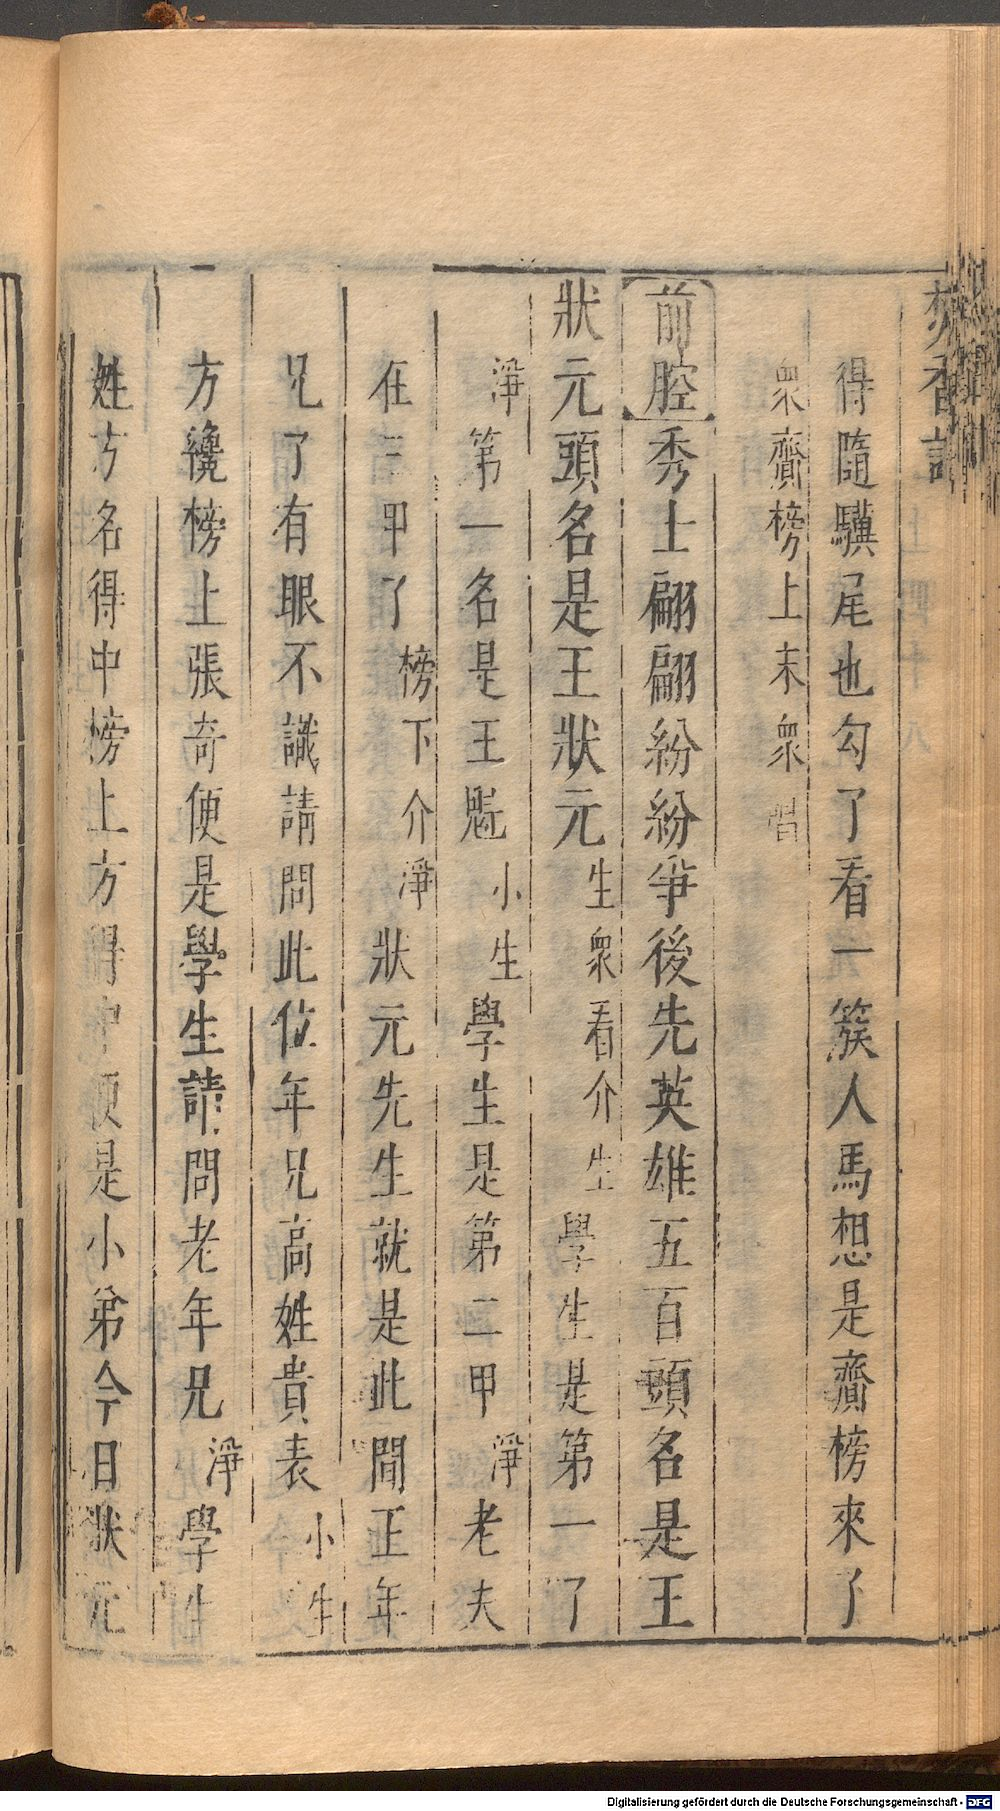 焚香記
得隨驥尾也勾了看一簇人馬想是齎榜來了
衆齎榜上末衆唱
前腔秀士翩翩紛紛爭後先英雄五百頭名是王
狀元頭名是王狀元生衆看介生學生是第一了
淨第一名是王魁小生學生是第二甲淨老夫
在三甲了榜下介淨狀元先生就是此間正年
兄了有眼不識請問此位年兄高姓貴表小生
方纔榜上張奇便是學生請問老年兄淨學生
姓方名得中榜上方得中便是小弟今日狀元
Digitalisierung gefördert durch die Deutsche Forschungsgemeinschaft - DFG